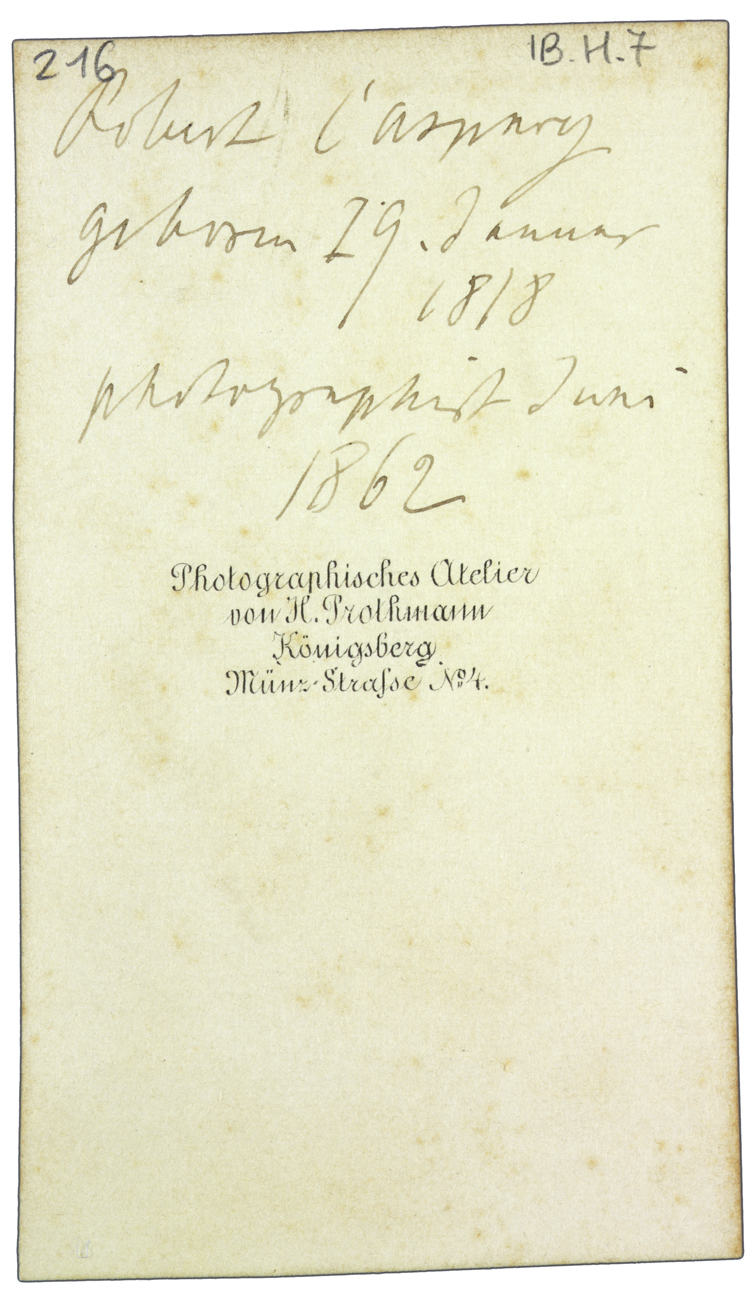 216 1B.H.7
Robert Caspary
geboren 29. Januar
1818
photographirt Juni
1862
Photographisches Atelier
von H. Prothmann
Königsberg
Münz-Straſse No 4.